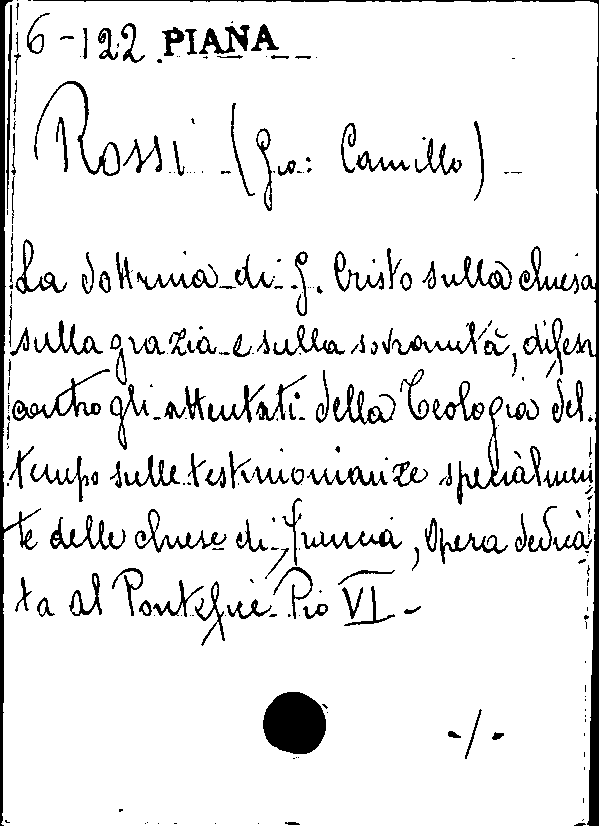 6-122 PIANA
Rossi (Gio: Camillo)
La dottrina di G. Cristo sulla chiesa
sulla grazia e sulla sovranità, difesa
contro gli attentati della Teologia del
tempo sulle testimonianze specialmen
te delle chiese di Francia, Opera dedica
ta al Pontefice Pio VI -
-/-